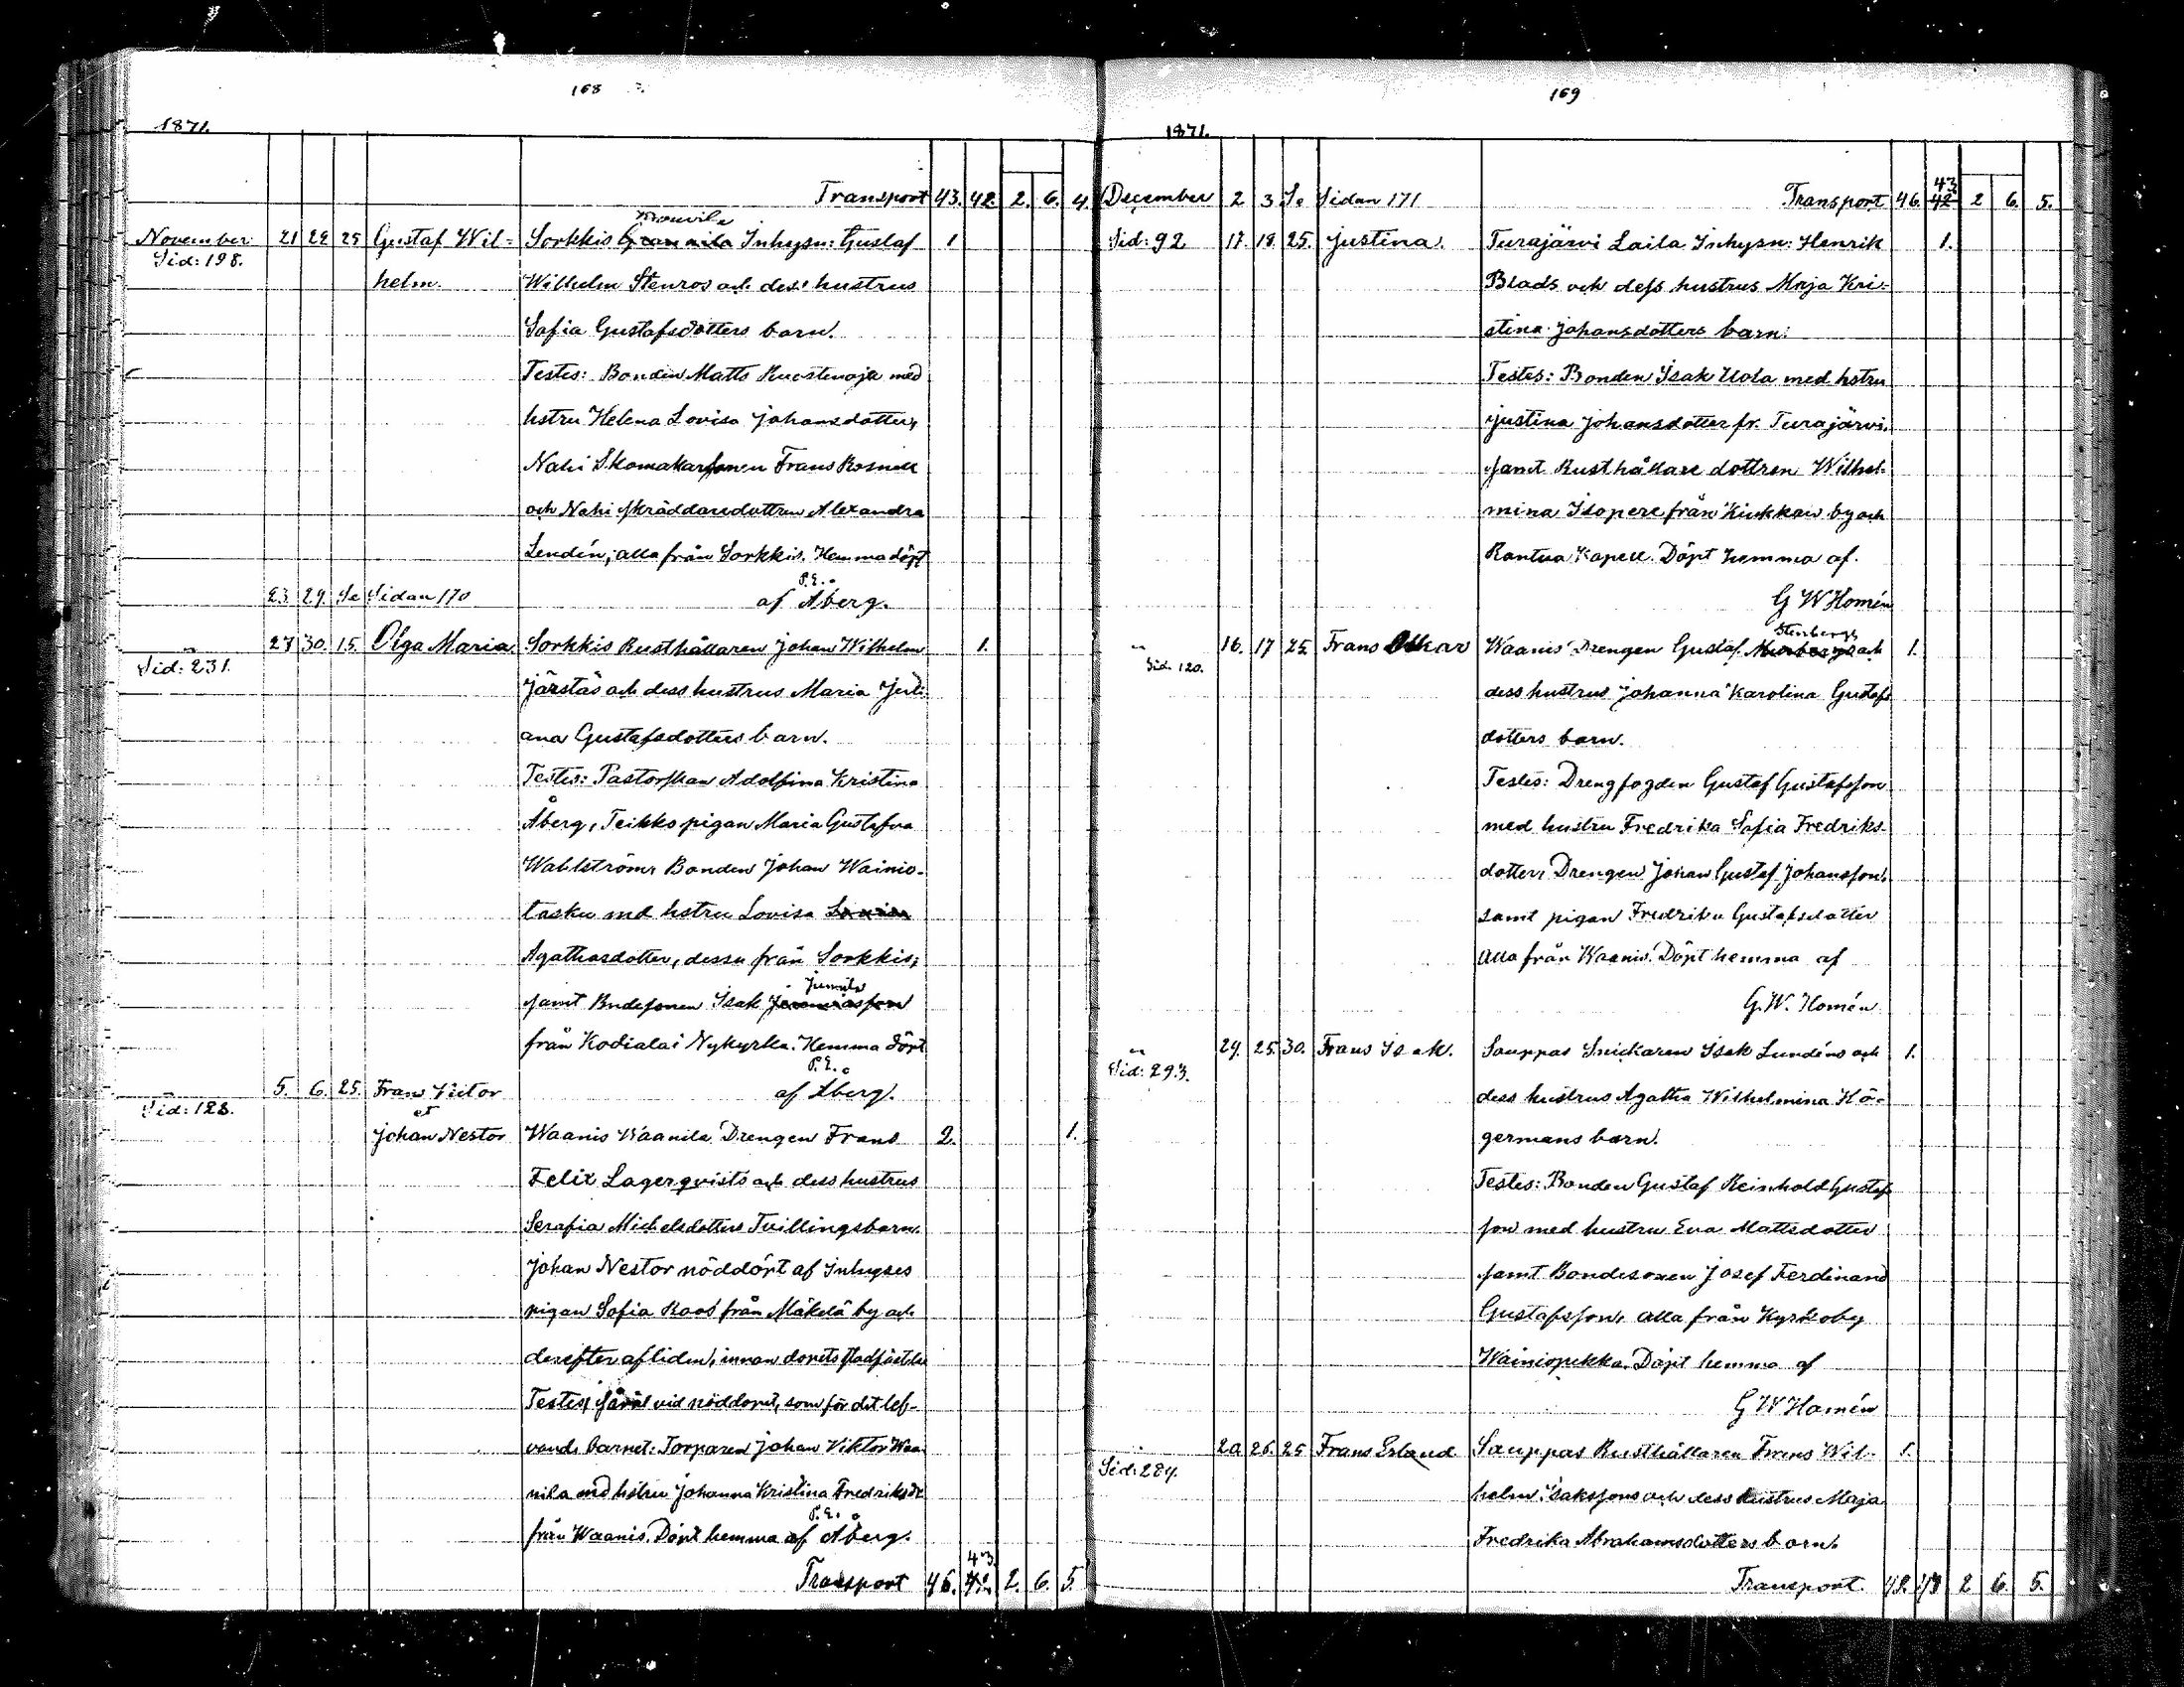 168
1871.
Transport 43. 42. 2. 6. 4.
November 21 22 25 Gustaf Wil= Sorkkis Inhysn: Gustaf 1
Sid: 198.
helm. Wilhelm Stenros och dess hustrus
Sofia Gustafsdotters barn.
Testes: Bonden Matts Ruostenoja med
hstru Helena Lovisa Johansdotter,
Nahi Skomakarsonen Frans Rosnell
och Nahi skräddaredottren Alexandra
Lendén, alla från Sorkkis. Hemma döpt
P. E.
23. 29. Se Sidan 170 af Åberg.
27 30. 15. Olga Maria Sorkkis Rusthållaren Johan Wilhelm 1.
Sid: 231.
Järstäs och dess hustrus Maria Juli-
ana Gustafsdotters barn.
Testes: Pastorskan Adolfina Kristina
Åberg, Teikko pigan Maria Gustafva
Wahlström, Bonden Johan Wainio-
tasku med hstru Lovisa
Agathasdotter, dessa från Sorkkis,
Junnila
samt Bndesonen Isak
från Kodiala i Nykyrka. Hemma döpt
P. E.
5. 6. 25. Frans Victor af Åberg.
Sid: 128.
et
Johan Nestor Waanis Waanila Drengen Frans 2. 1.
Felix Lagerqvists och dess hustrus
Serafia Michelsdotters Tvillingsbarn.
Johan Nestor nöddöpt af Inhyses
pigan Sofia Roos från Mäkelä by och
derefter afliden, innan dopets stadfästelse
Testes, såväl vid nöddopet, som för det lef-
vande barnet: Torparen Johan Viktor Waa-
nila med hstru Johanna Kristina Fredriksdr
P. E.
från Waanis. Döpt hemma af Åberg.
43
Transport 46. 42. 2. 6. 5.
169
1871.
43
December 2 3 Se Sidan 171 Transport 46. 42 2 6. 5.
Sid: 92 17. 18. 25. Justina. Turajärvi Laila Inhysn: Henrik 1.
Blads och dess hustrus Maja Kri-
stina Johansdotters barn.
Testes: Bonden Isak Uola med hstru
Justina Johansdotter fr. Turajärvi,
samt Rusthållare dottren Wilhel-
mina Isopere från Kiukkais by och
Kapell. Döpt hemma af
G W Homén
Stenbergs
16. 17 25. Frans Oskar Waanis Drengen Gustaf och 1.
Sid. 120.
dess hustrus Johanna Karolina Gustafs
dotters barn.
Testes: Drengfogden Gustaf Gustafsson
med hustru Fredrika Sofia Fredriks-
dotter, Drengen Johan Gustaf Johansson,
samt pigan Fredrika Gustafsdotter
alla från Waanis. Döpt hemma af
G. W. Homén
24. 25. 30. Frans Isak. Sauppas Snickaren Isak Lundéns och 1.
Sid: 293.
dess hustrus Agatha Wilhelmina Hö-
germans barn.
Testes: Bonden Gustaf Reinhold Gustafs
son med hustru Eva Mattsdotter
samt Bondesonen Josef Ferdinand
Gustafsson, alla från Kyrkoby
Wainiopekka. Döpt hemma af
G W Homén
20 26. 25 Frans Erland Sauppas Rusthållaren Frans Wil- 1.
Sid: 284.
helm Isakssons och dess hustrus Maja
Fredrika Abrahamsdotters barn.
Transport. 2 6. 5.